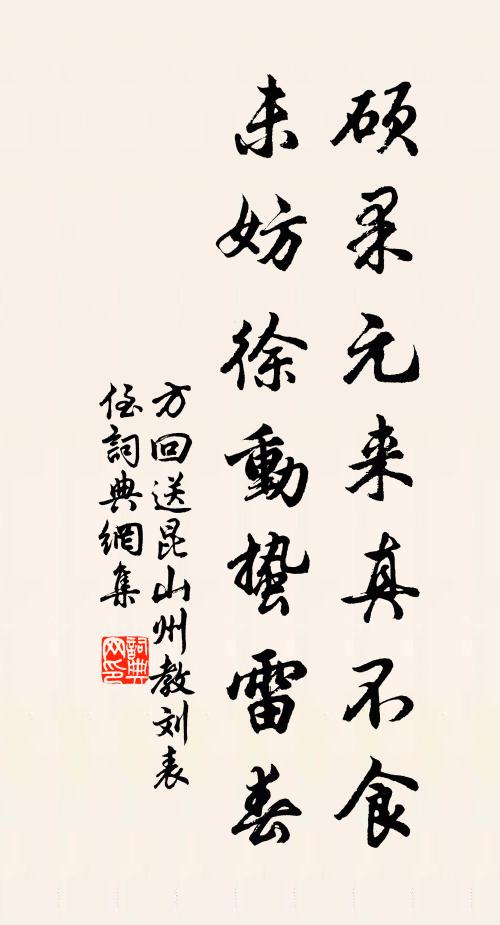 硕果元来真不食
未妨徐動蛰雷春
方回送昆山州教刘表
侄詞典網集
詞典
网印